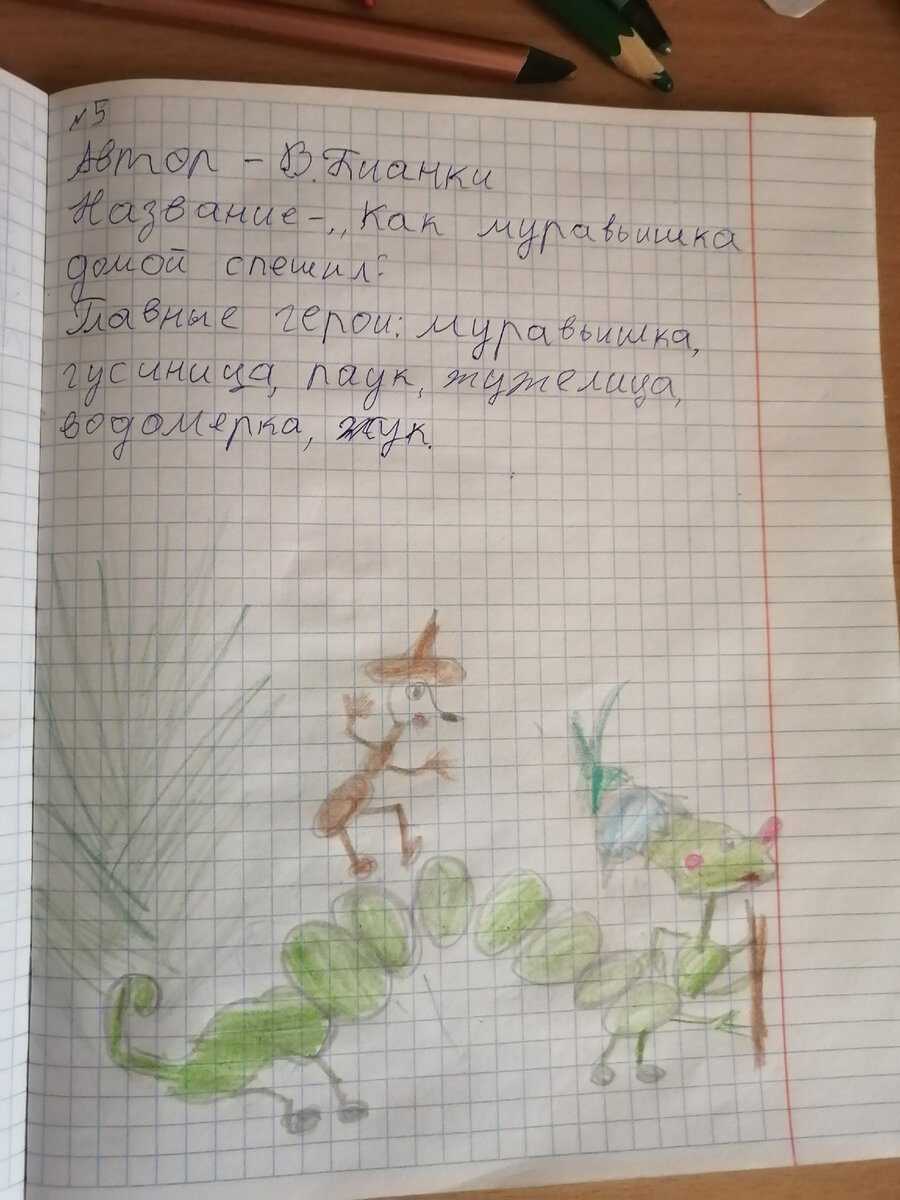 №5
Автор - В.Бианки
Название-„Как муравьишка
домой спешил".
Главные герои: муравьишка,
гусиница, паук, жужелица,
водомерка, жук.